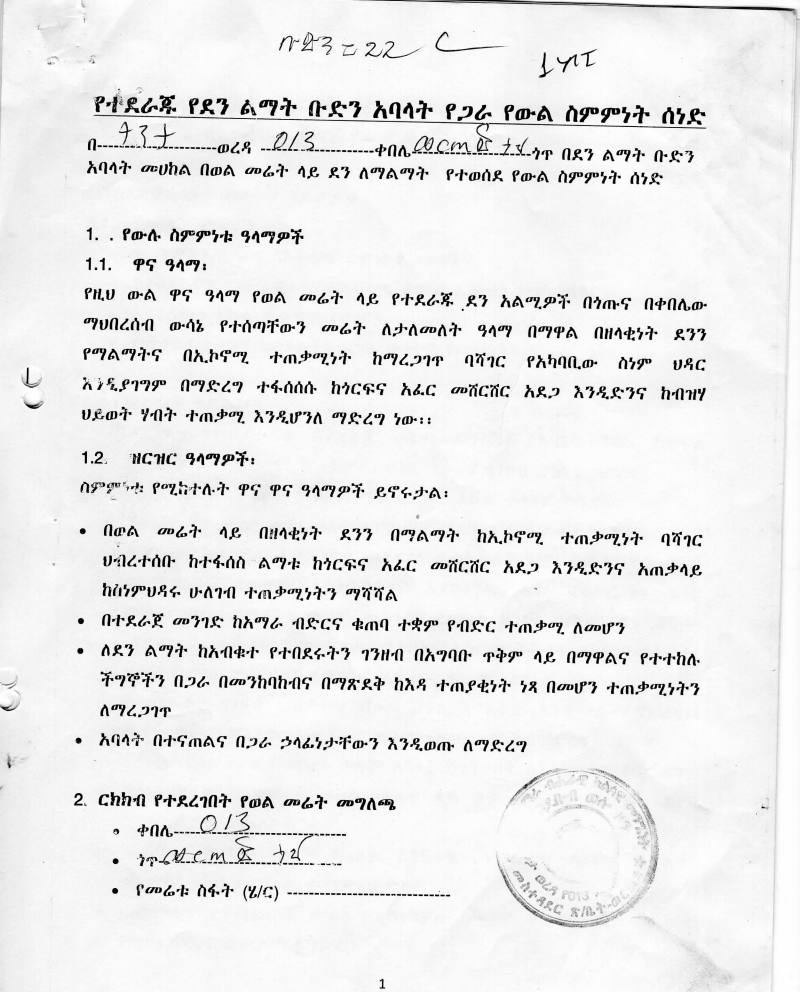 የተደራጁ የደን ልማት ቡድን አባላት የጋራ የውል ስምምነት ሰነድ
በ---ወረዳ 013 ቀበሌ---ጎጥ በደን ልማት ቡድን
አባላት መሀከል በወል መሬት ላይ ደን ለማልማት የተወሰደ የውል ስምምነት ሰነድ
1. . የውሉ ስምምነቱ ዓላማዎች
1.1. ዋና ዓላማ፡
የዚህ ውል ዋና ዓላማ የወል መሬት ላይ የተደራጁ ደን አልሚዎች በጎጡና በቀበሌው
ማህበረሰብ ውሳኔ የተሰጣቸውን መሬት ለታለመለት ዓላማ በማዋል በዘላቂነት ደንን
የማልማትና በኢኮኖሚ ተጠቃሚነት ከማረጋገጥ ባሻገር የአካባቢው ስነም ህዳር
እንዲያገግም በማድረግ ተፋሰሰሱ ከጎርፍና አፈር መሸርሸር አደጋ እንዲድንና ከብዝሃ
ህይወት ሃብት ተጠቃሚ እንዲሆንለ ማድረግ ነው፡፡
1.2. ዘርዝር ዓላማዎች፡
ስምምነቱ የሚከተሉት ዋና ዋና ዓላማዎች ይኖሩታል፡
• በወል መሬት ላይ በዘላቂነት ደንን በማልማት ከኢኮኖሚ ተጠቃሚነት ባሻገር
ህብረተሰቡ ከተፋሰስ ልማቱ ከጎርፍና አፈር መሸርሸር አደጋ እንዲድንና አጠቃላይ
ከስነምህዳሩ ሁለገብ ተጠቃሚነትን ማሻሻል
• በተደራጀ መንገድ ከአማራ ብድርና ቁጠባ ተቋም የብድር ተጠቃሚ ለመሆን
• ለደን ልማት ከአብቁተ የተበደሩትን ገንዘብ በአግባቡ ጥቅም ላይ በማዋልና የተተከሉ
ችግኞችን በጋራ በመንከባከብና በማጽደቅ ከእዳ ተጠያቂነት ነጻ በመሆን ተጠቃሚነትን
ለማረጋገጥ
• አባላት በተናጠልና በጋራ ኃላፊነታቸውን እንዲወጡ ለማድረግ
2. ርክክብ የተደረገበት የወል መሬት መግለጫ
• ቀበሌ 013
• ጎጥ
• የመሬቱ ስፋት (ሄ/ር) ---
1